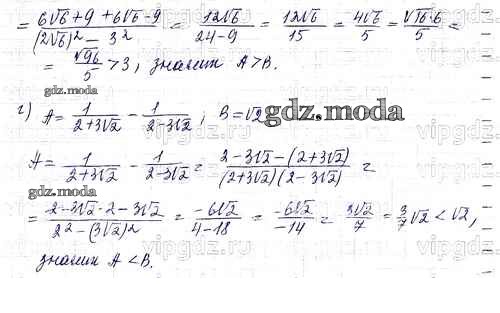 = (6√6 + 9 + 6√6 - 9) / ((2√6)² - 3²) = 12√6 / (24 - 9) = 12√6 / 15 = 4√6 / 5 = √16·6 / 5 =
= √96 / 5 > 3, значит A > B.
gdz.moda
г) A = 1 / (2+3√2) - 1 / (2-3√2); B = √2
gdz.moda
A = 1 / (2+3√2) - 1 / (2-3√2) = (2-3√2-(2+3√2)) / ((2+3√2)(2-3√2)) =
gdz.moda
= (2-3√2-2-3√2) / (2² - (3√2)²) = -6√2 / (4-18) = -6√2 / -14 = 3√2 / 7 = 3/7 √2 < √2,
значит A < B.
vipgdz
vipgdz
vipgdz
vipgdz